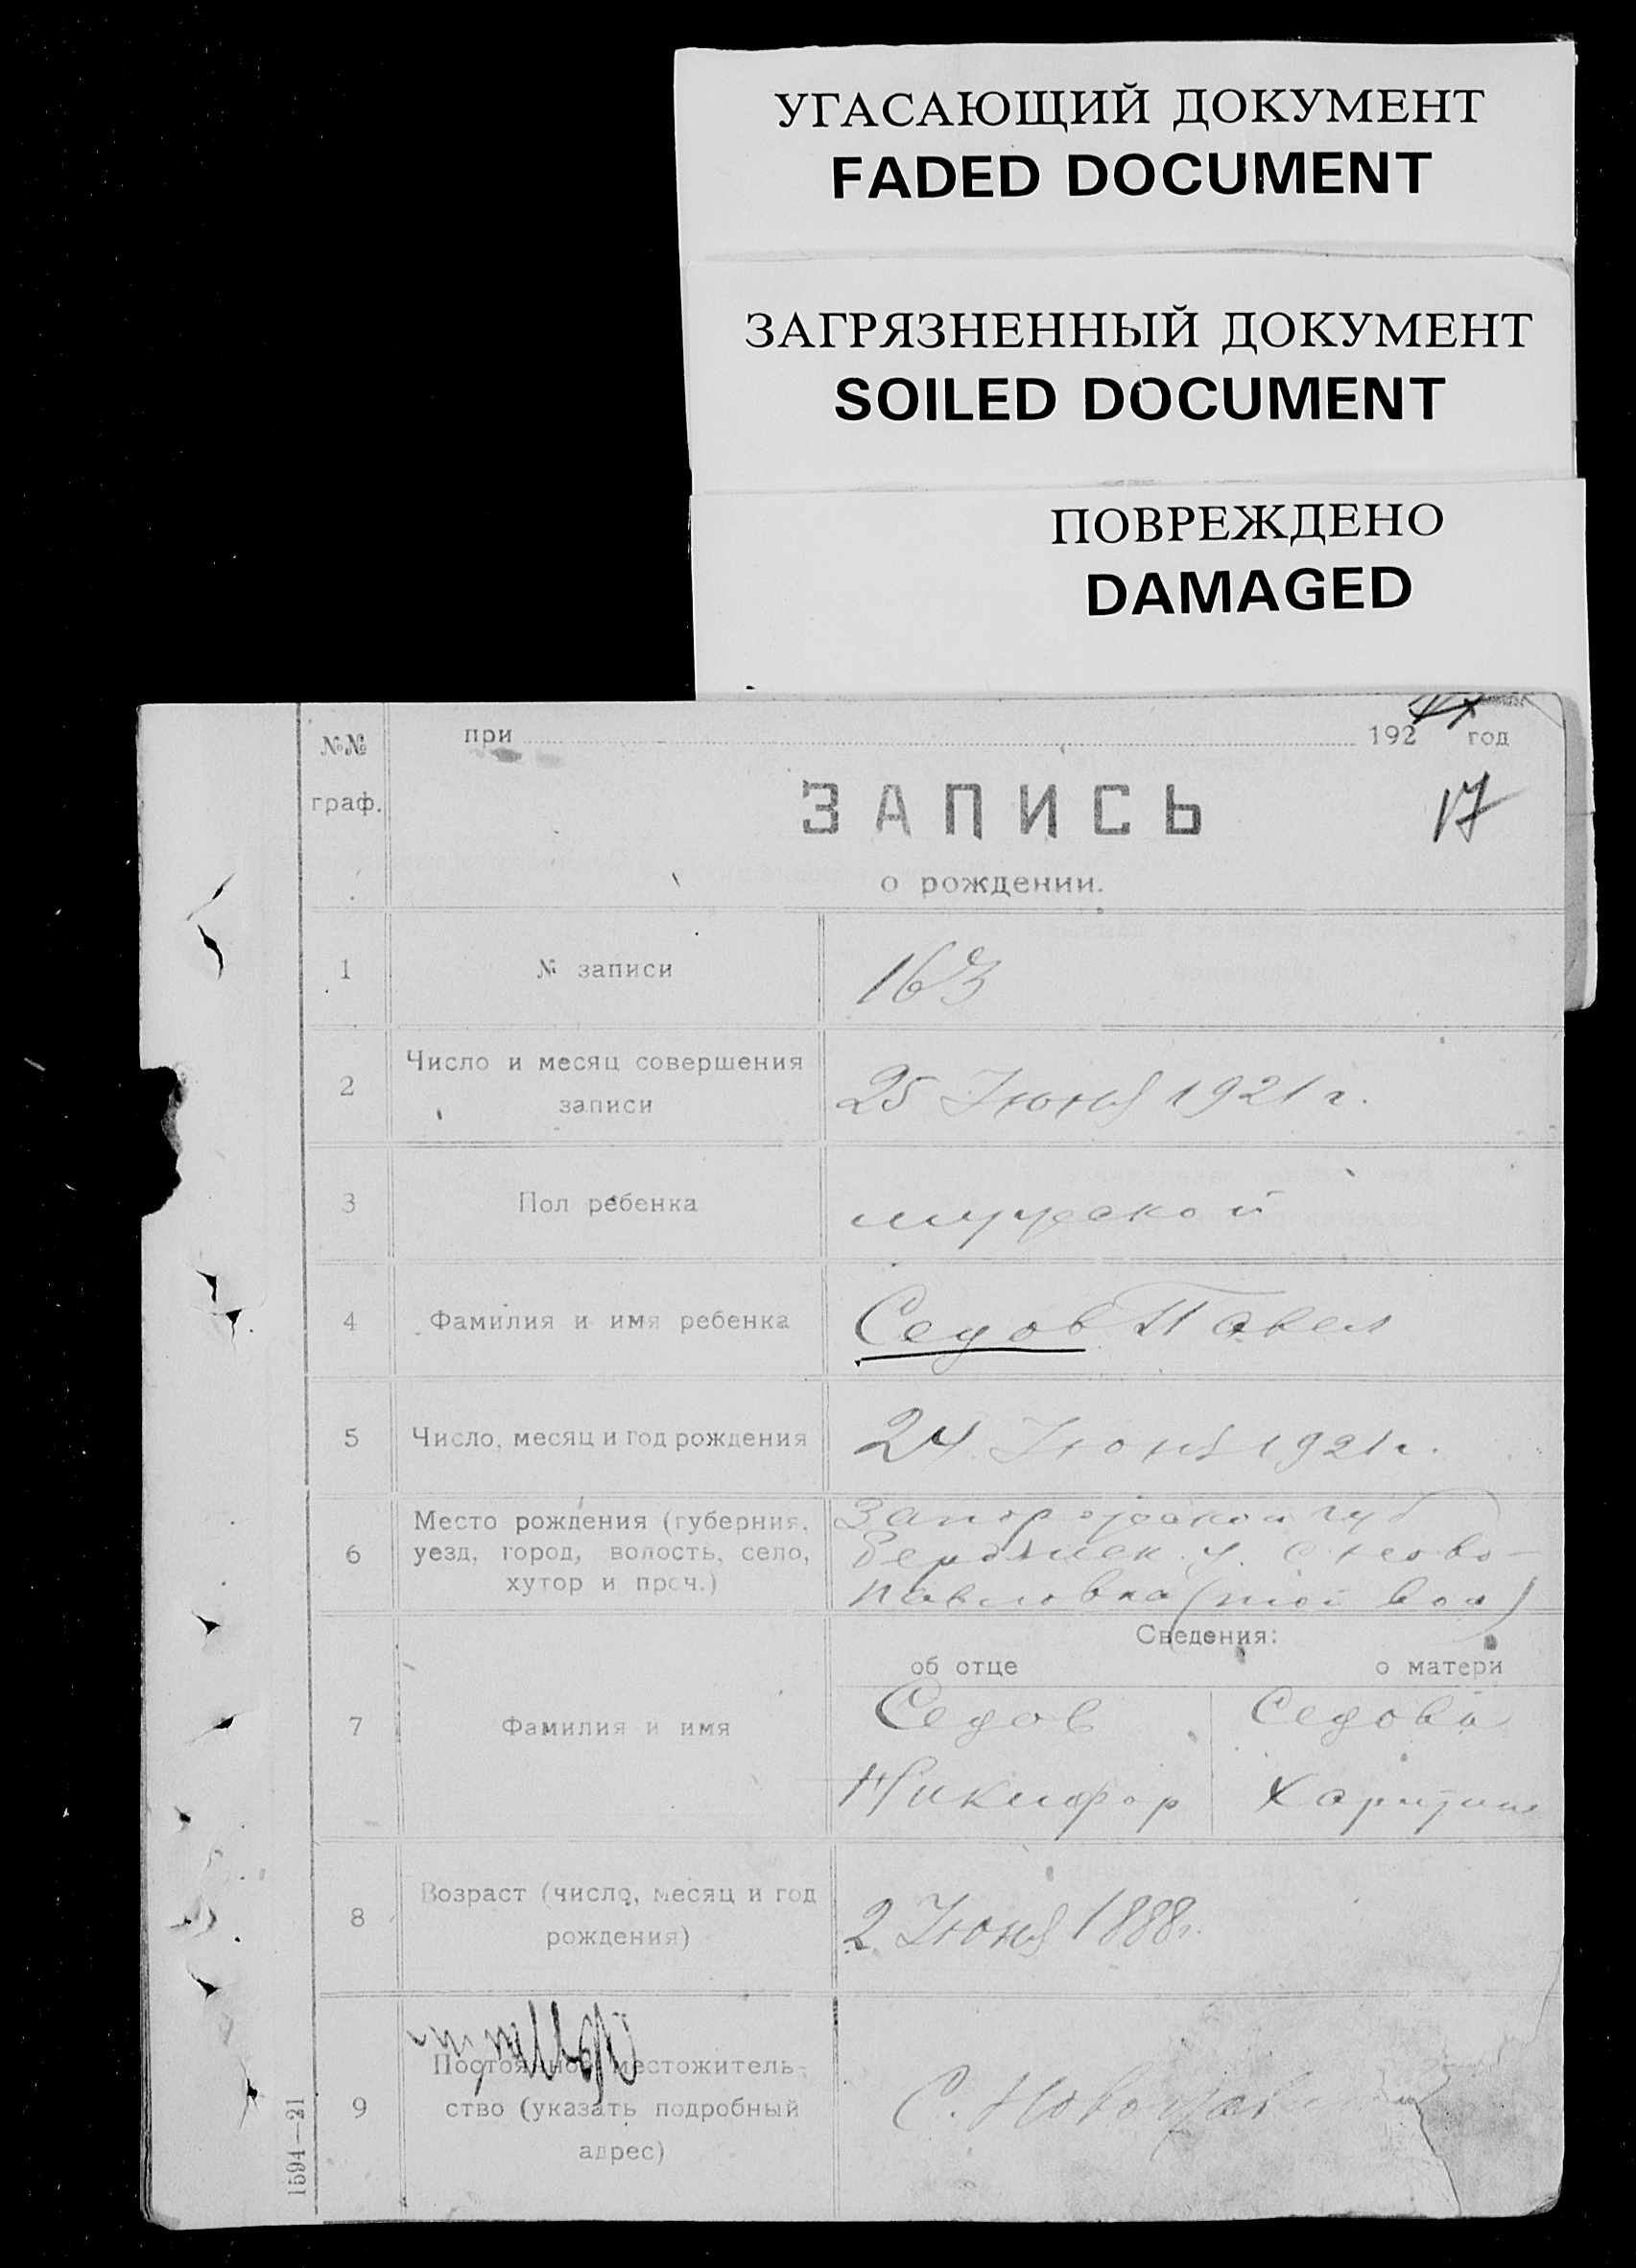 УГАСАЮЩИЙ ДОКУМЕНТ
FADED DOCUMENT
ЗАГРЯЗНЕННЫЙ ДОКУМЕНТ
SOILED DOCUMENT
ПОВРЕЖДЕНО
DAMAGED
№№ граф.
при 192 год
17
ЗАПИСЬ
о рождении.
1 № записи 163
2 Число и месяц совершения
записи 25 Июня 1921 г.
3 Пол ребенка мужской
4 Фамилия и имя ребенка Седов Павел
5 Число, месяц и год рождения 24 Июня 1921 г.
6 Место рождения (губерния,
уезд, город, волость, село,
хутор и проч.)
Запорожской губ
Бердянск. у. с Ново-
павловка (той вол)
Сведения:
об отце о матери
7 Фамилия и имя
Седов Седова
Никифор Харитина
8 Возраст (число, месяц и год
рождения) 2 Июня 1888 г.
9 Постоянное местожитель-
ство (указать подробный
адрес)
С.
1594—21